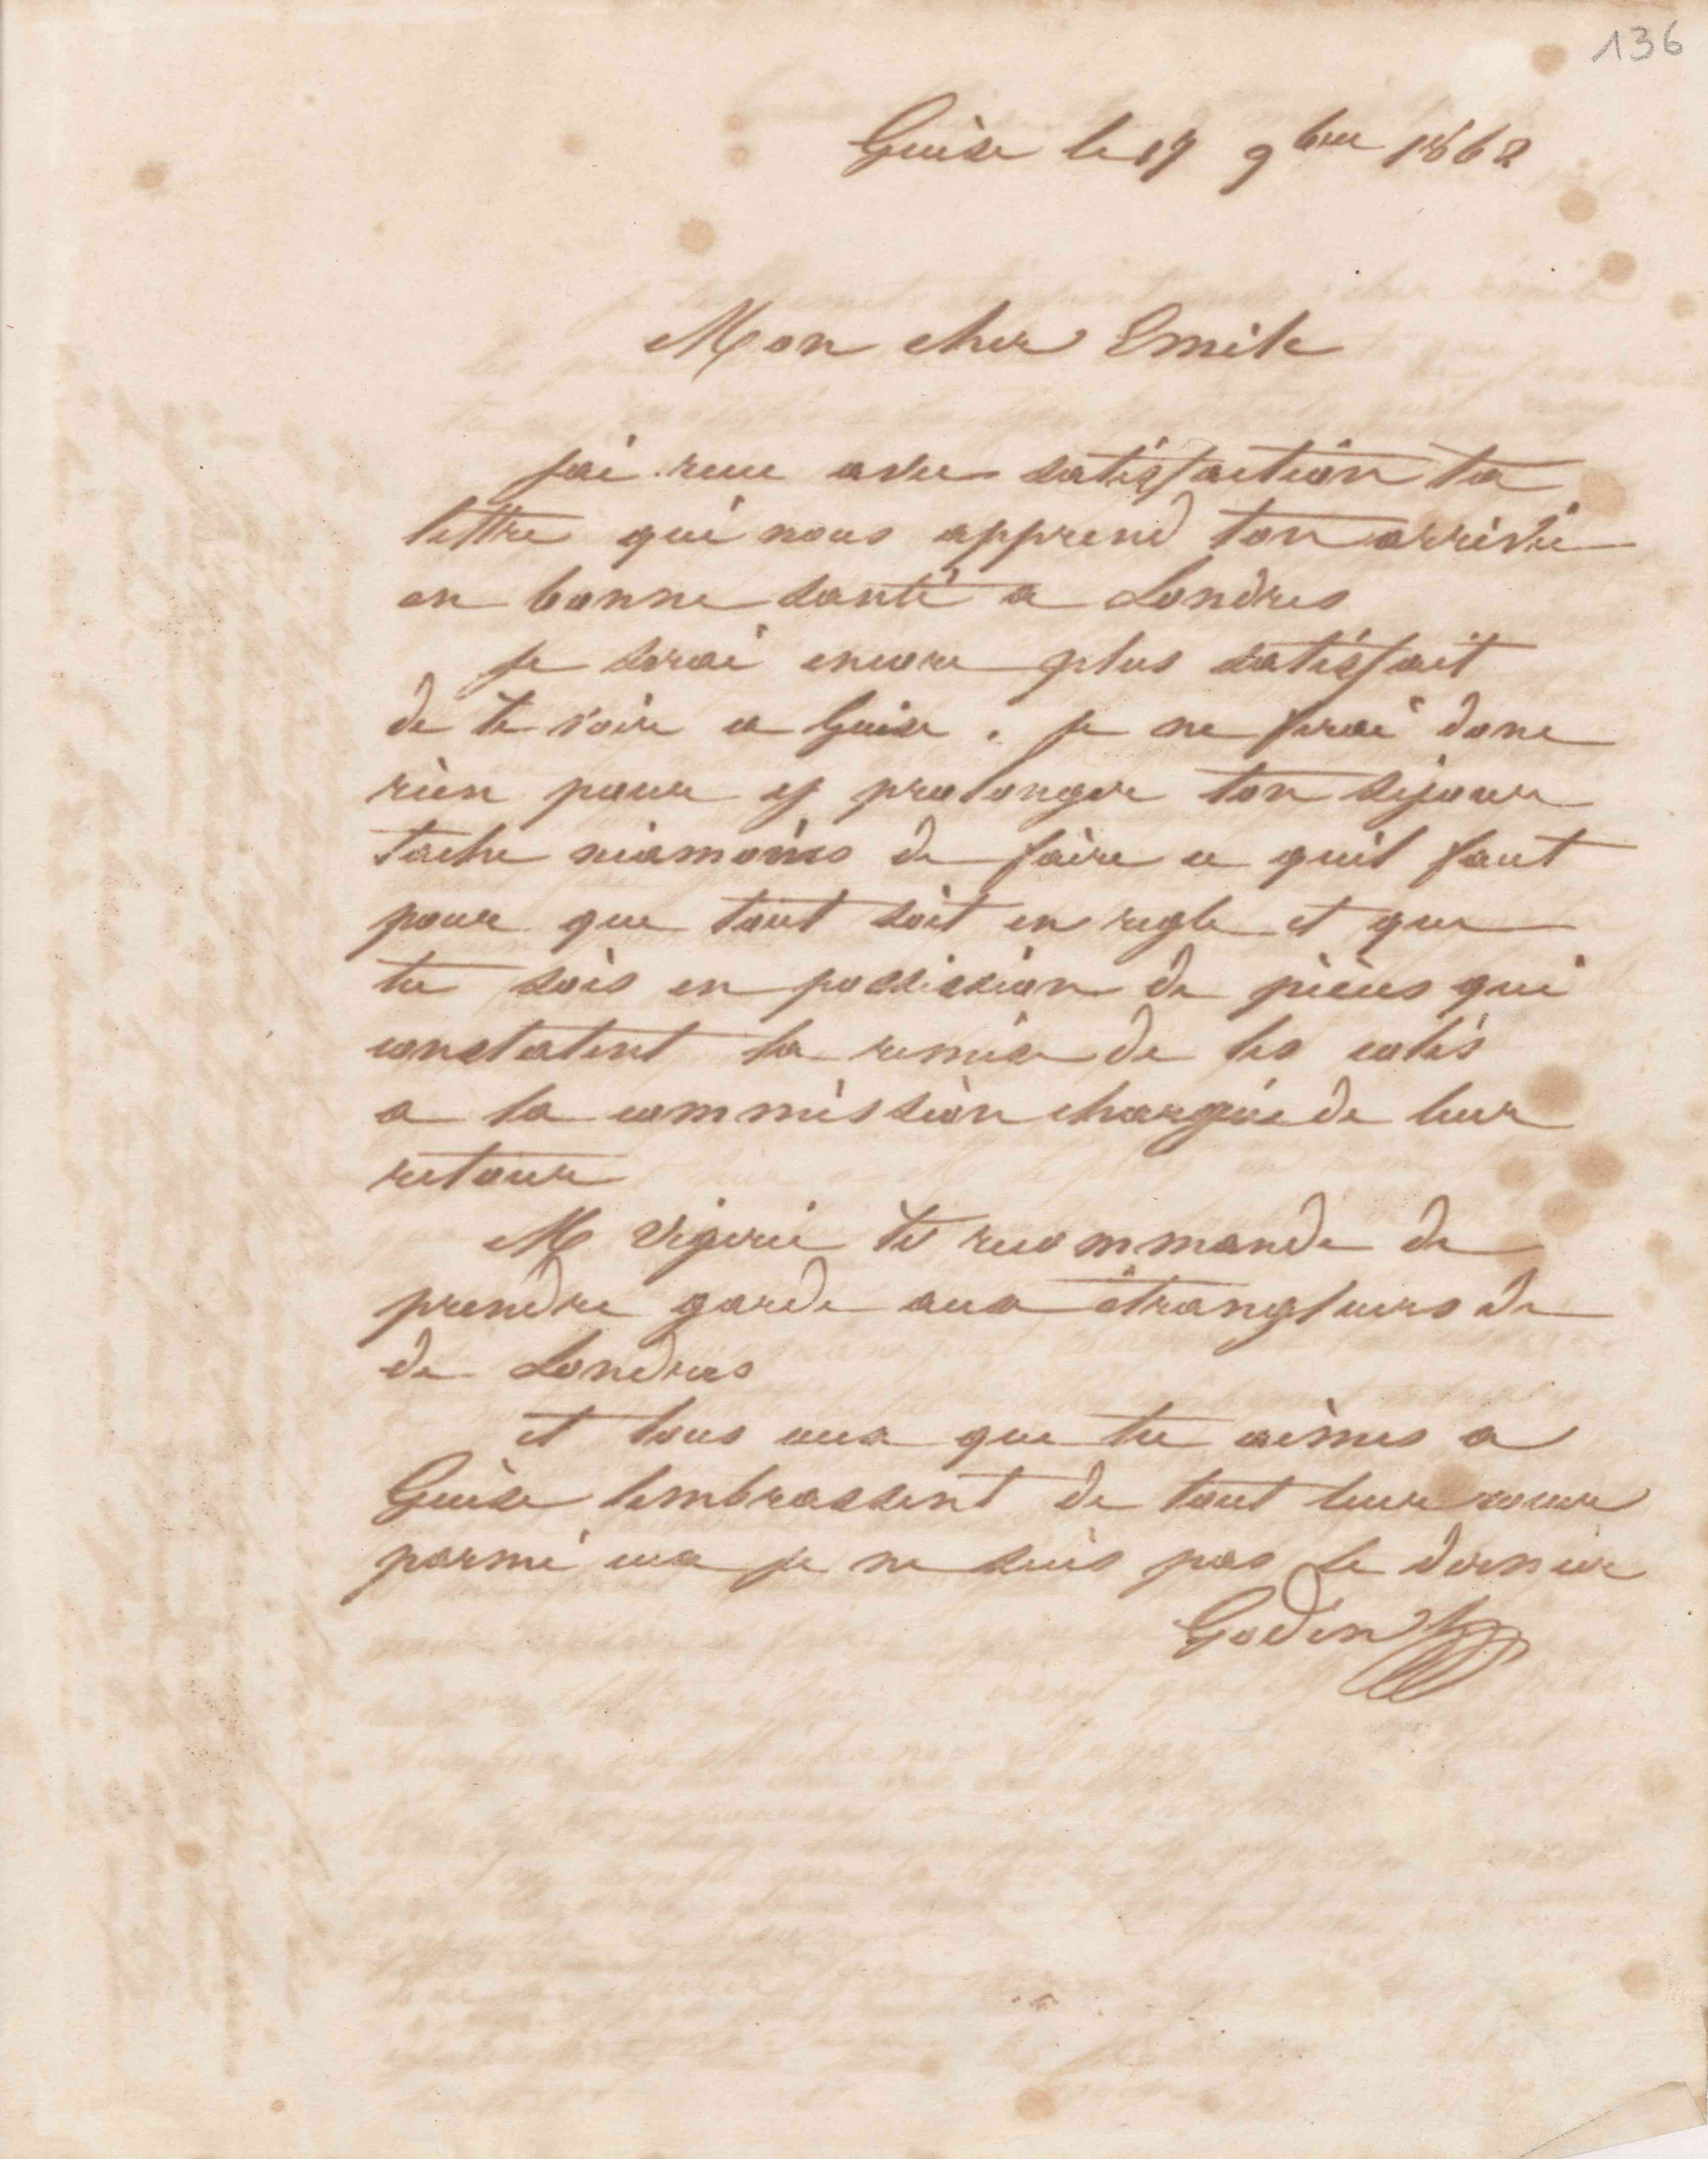 136
Guise le 19 9bre 1862
Mon cher Emile
jai recu avec satisfaction ta
lettre qui nous apprend ton arrivée
en bonne santé a Londres
je serai encore plus satisfait
de te voir a Guise . je ne ferai donc
rien pour y prolonger ton sejour
tache niamoins de faire ce quil faut
pour que tout soit en regle et que
tu sois en possission de pièces qui
constatent la remise de tes colis
a la commission chargée de leur
retour
M Vigerie te recommande de
prendre garde aux étrangleurs de
de Londres
et tous ceux que tu aimes a
Guise tembrassent de tout leur cœur
parmi eux je ne suis pas le dernier
Godin